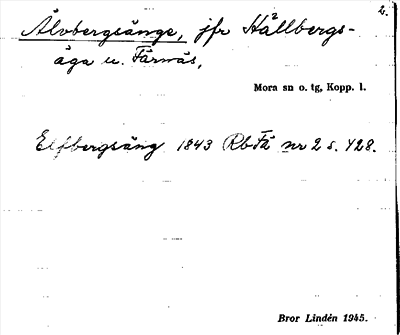 2.
Älvbergsänge, jfr Hållbergs-
äga u. Färnäs,
Mora sn o. tg, Kopp. l.
Elfbergsäng 1843 Rb Fä nr 2 s. 428.
Bror Lindén 1945.